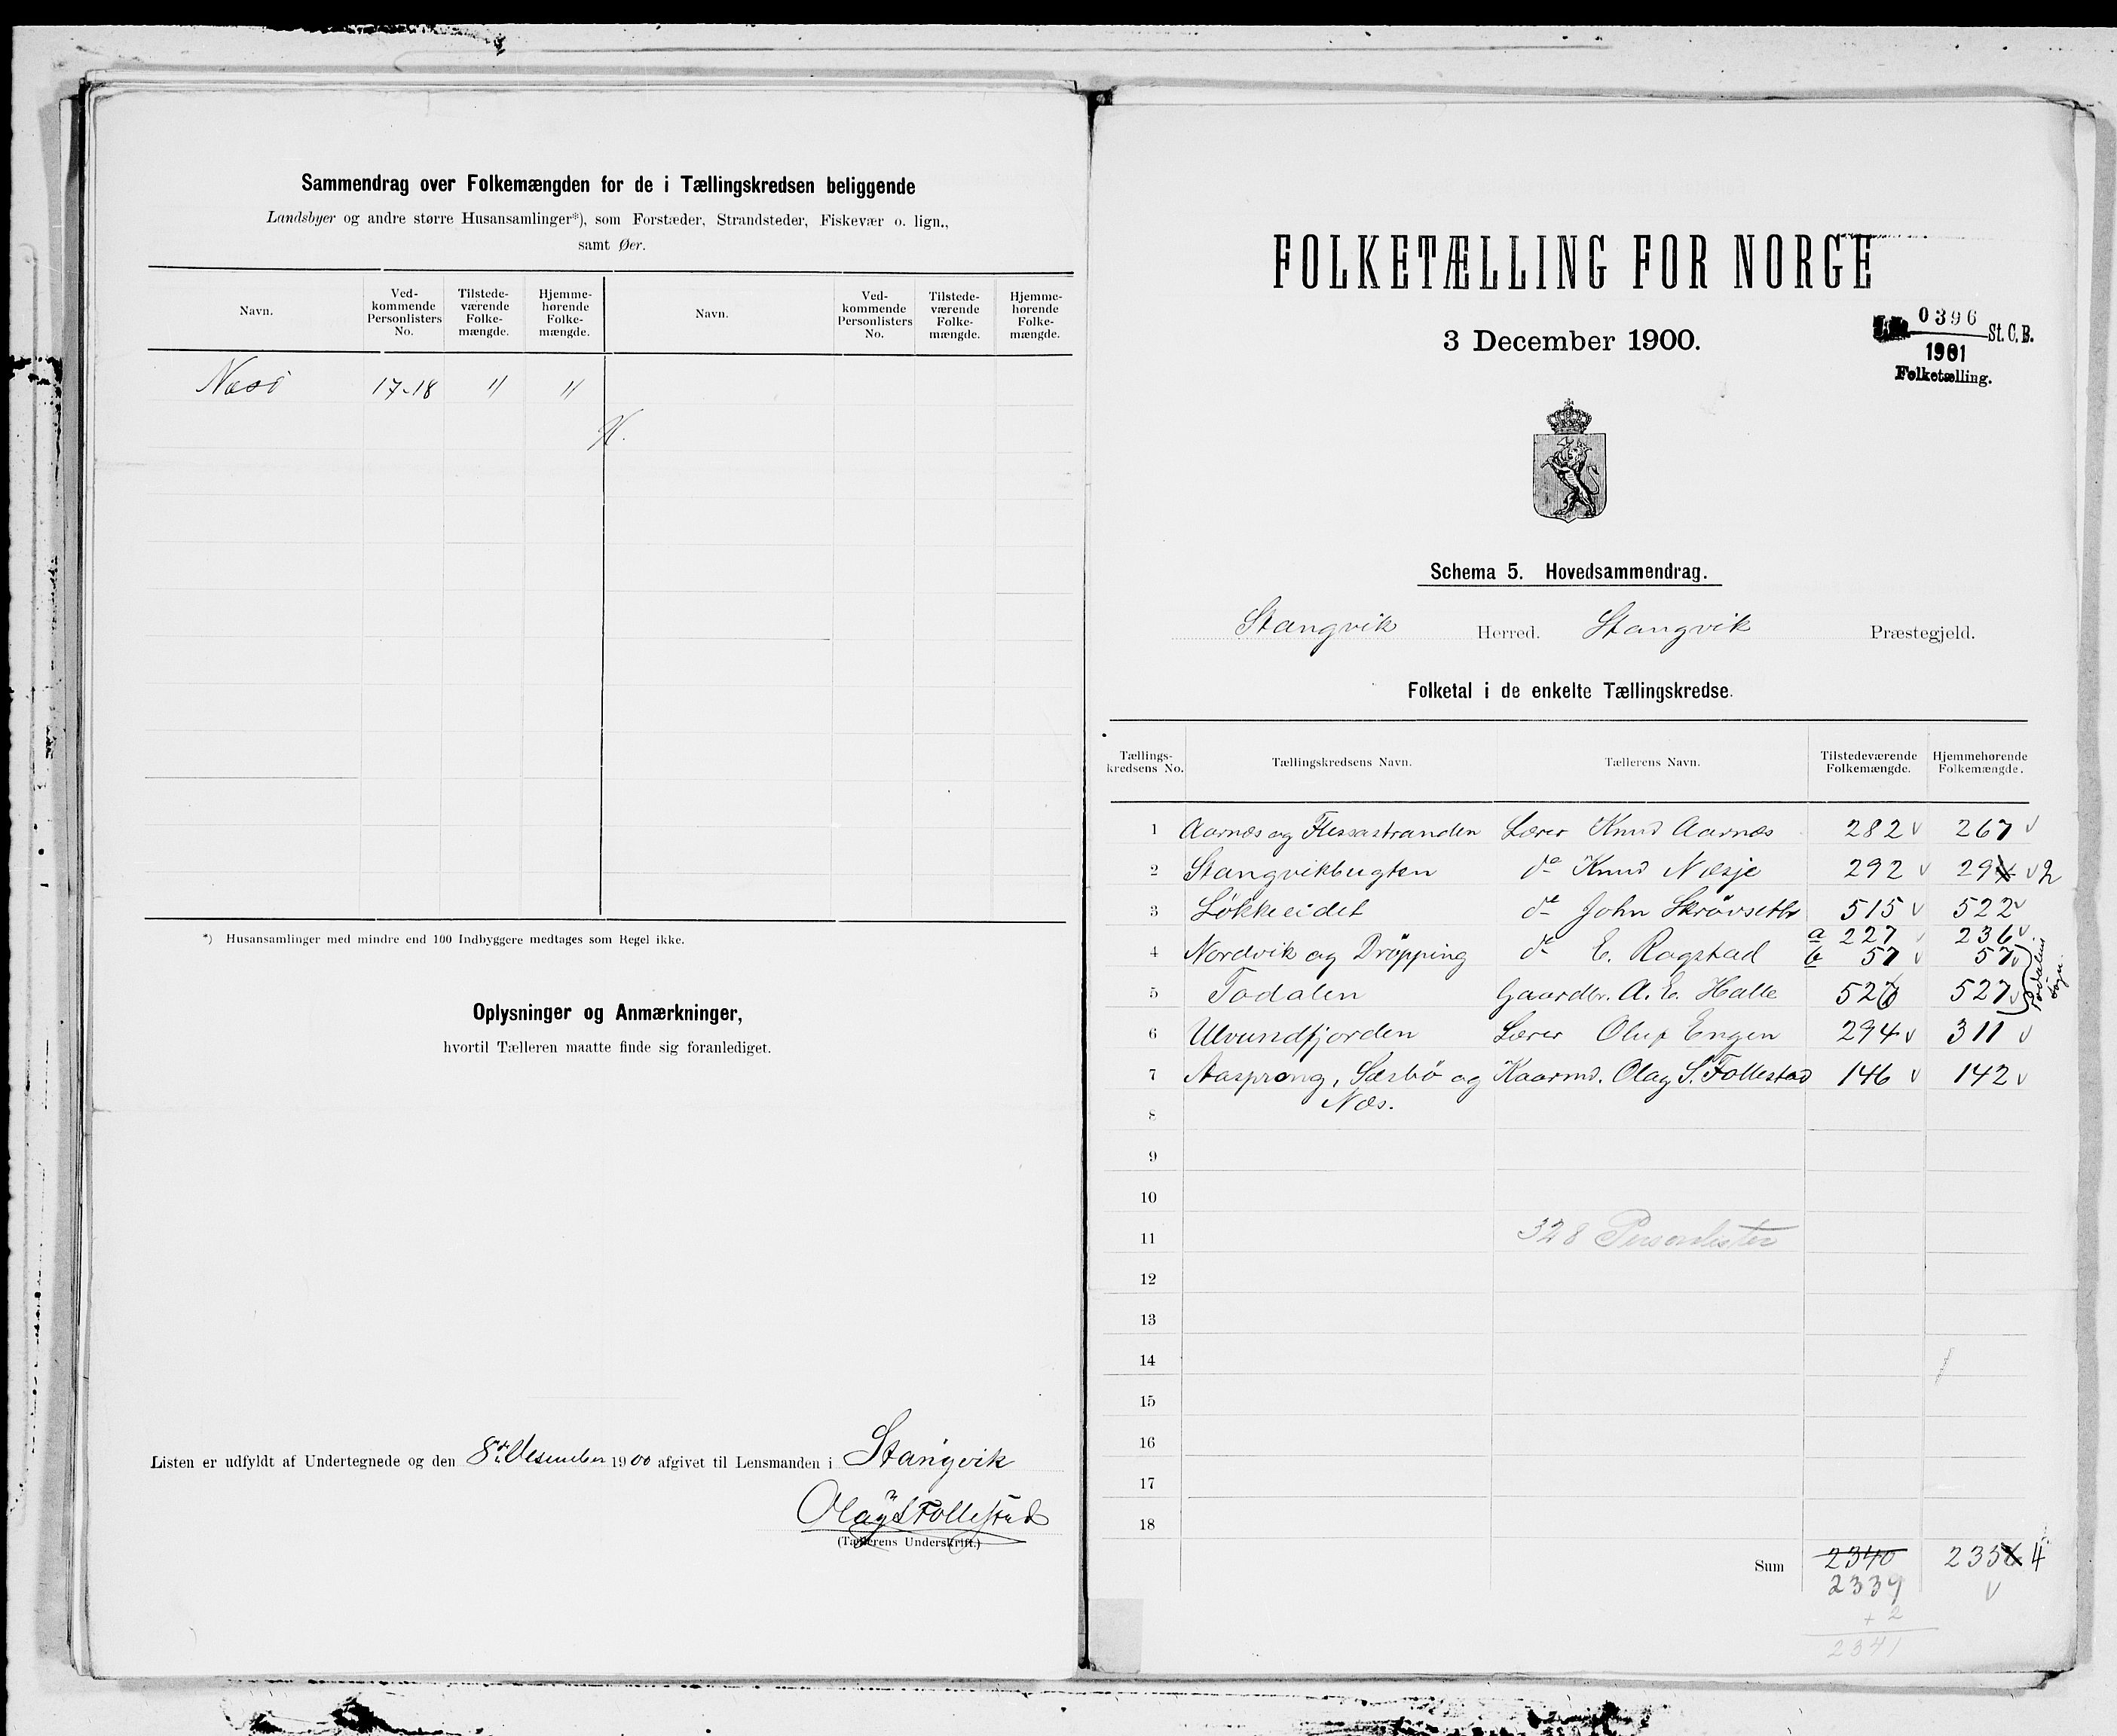 Sammendrag over Folkemængden for de i Tællingskredsen beliggende
Landsbyer og andre større Husansamlinger*), som Forstæder, Strandsteder, Fiskevær o. lign.,
samt Øer.
Navn. Ved-kommende Personlisters No. Tilstede-værende Folke-mængde. Hjemme-hørende Folke-mængde. Navn. Ved-kommende Personlisters No. Tilstede-værende Folke-mængde. Hjemme-hørende Folke-mængde.
17-18 " "
*) Husansamlinger med mindre end 100 Indbyggere medtages som Regel ikke.
Oplysninger og Anmærkninger,
hvortil Tælleren maatte finde sig foranlediget.
Listen er udfyldt af Undertegnede og den 8de Desember 1900 afgivet til Lensmanden i Stangvik
Olag S Follestad
(Tællerens Underskrift.)
FOLKETÆLLING FOR NORGE
3 December 1900.
0396
St. C. B.
1901
Folketælling.
Schema 5. Hovedsammendrag.
Stangvik Herred. Stangvik Præstegjeld.
Folketal i de enkelte Tællingskredse.
Tællings-kredsens No. Tællingskredsens Navn. Tællerens Navn. Tilstedeværende Folkemængde. Hjemmehørende Folkemængde.
1 Aarnes og Flessastranden Lærer Knud Aarnes 282 v 267 v
2 Stangvikbugten do Knud Næsje 292 v 294 v 2
3 Løkkeeidet do John Skrøvseth 515 v 522 v
4 Nordvik og Drøpping do E. Rogstad a 227 v 236 v
b 57 v 57 v
5 Todalen Gaardbr. A. E. Halle 526 527 v Todalens Sogn.
6 Ulvundfjorden Lærer Oluf Engen 294 v 311 v
7 Aasprong, Sæsbø og Kaarmd. Olag S. Follestad 146 v 142 v
8 Næs.
9
10
11 328 Personlister
12
13
14
15
16
17
18
Sum 2340 2356 4
2339 v
+ 2
2341